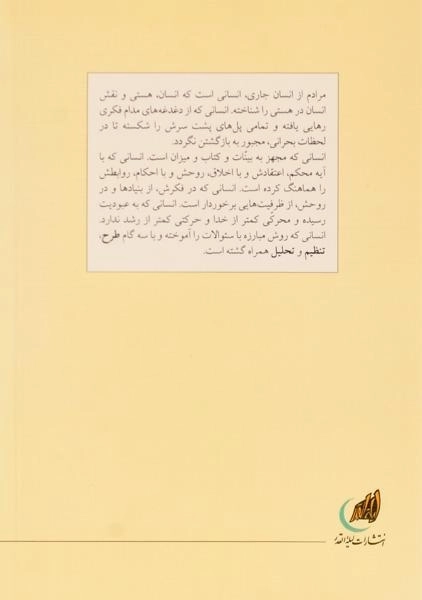 مرادم از انسان جاری، انسانی است که انسان، هستی و نقش
انسان در هستی را شناخته. انسانی که از دغدغه‌های مدام فکری
رهایی یافته و تمامی پل‌های پشت سرش را شکسته تا در
لحظات بحرانی، مجبور به بازگشتن نگردد.
انسانی که مجهز به بینّات و کتاب و میزان است. انسانی که با
آیه محکم، اعتقادش و با اخلاق، روحش و با احکام، روابطش
را هماهنگ کرده است. انسانی که در فکرش، از بنیادها و در
روحش، از ظرفیت‌هایی برخوردار است. انسانی که به عبودیت
رسیده و محرکّی کمتر از خدا و حرکتی کمتر از رشد ندارد.
انسانی که روش مبارزه با سئوالات را آموخته و با سه گام طرح،
تنظیم و تحلیل همراه گشته است.
انتشارات لیلة القدر